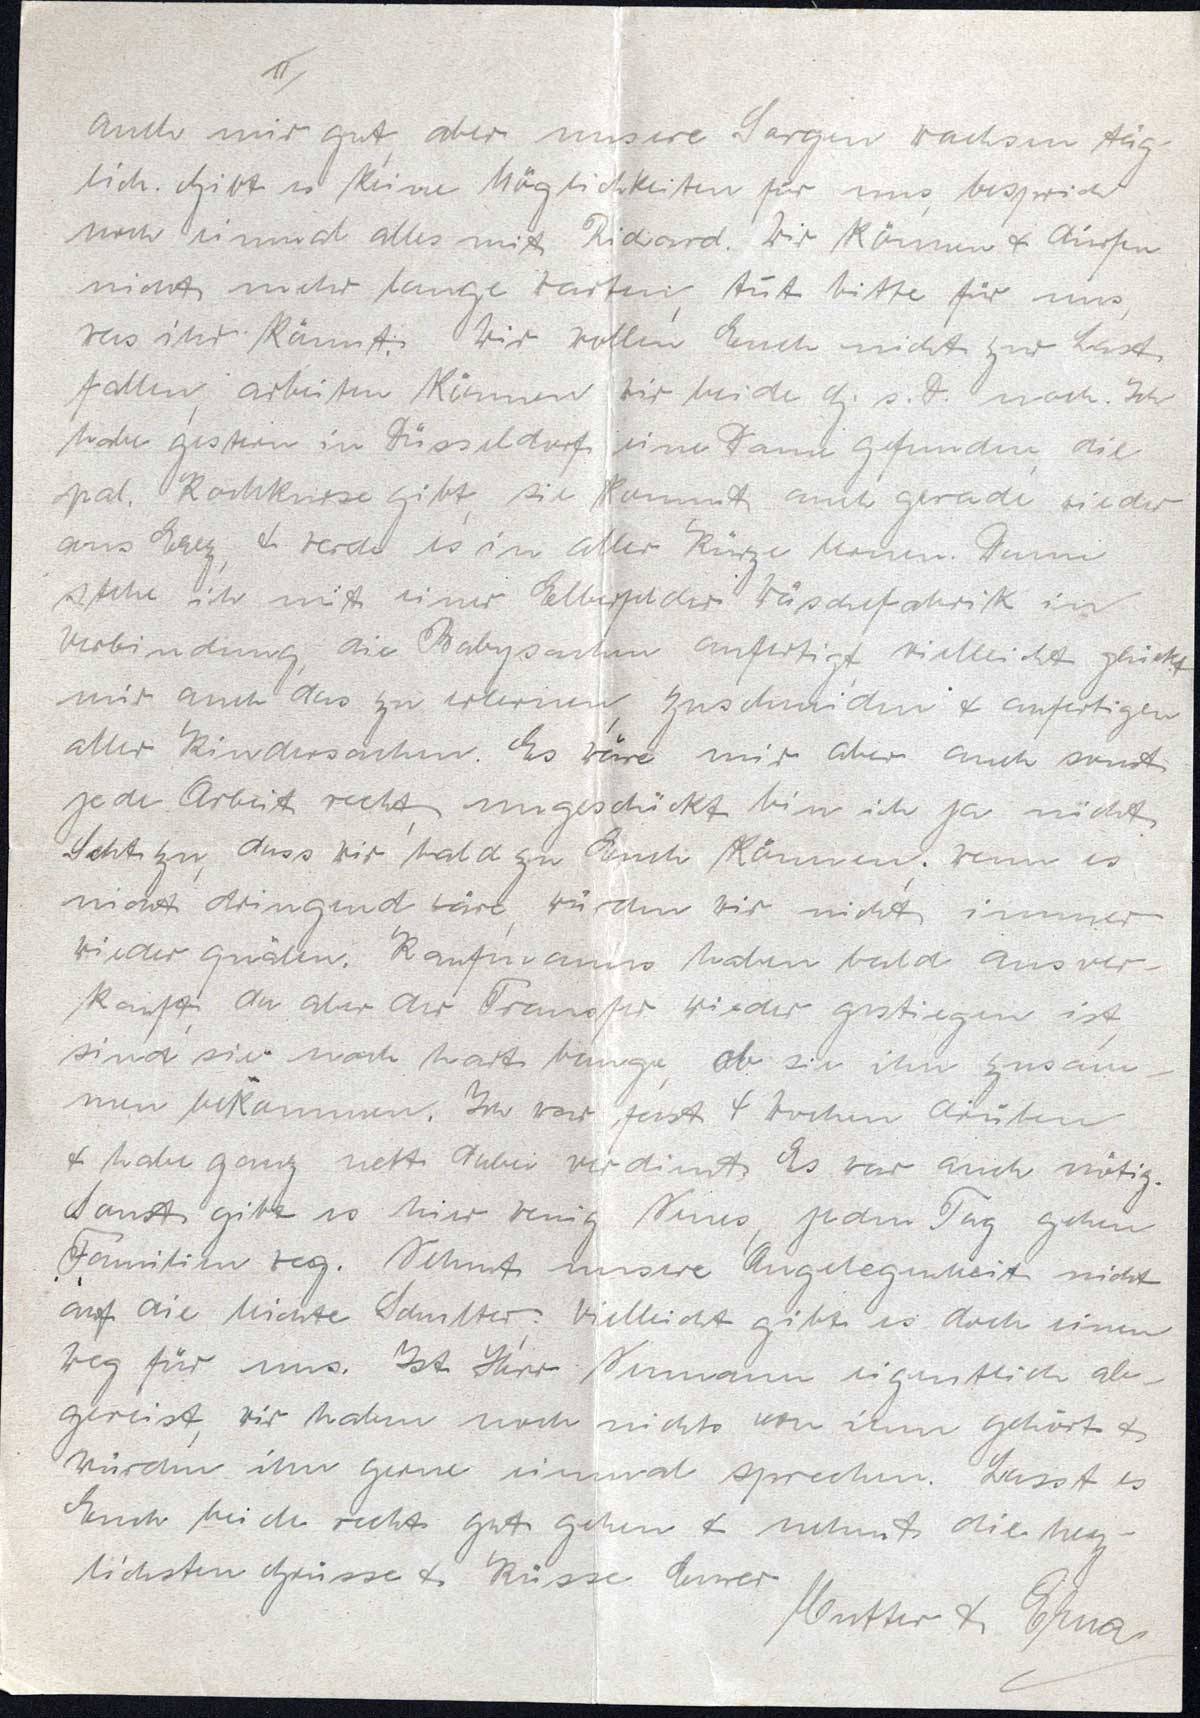 II
auch mir gut, aber unsere Sorgen wachsen täg-
lich. Gibt es keine Möglichkeiten für uns, besprich
noch einmal alles mit Richard. Wir können & dürfen
nicht mehr lange warten, tut bitte für uns,
was ihr könnt. Wir wollen Euch nicht zur Last
fallen, arbeiten können wir beide G. s. D. noch. Ich
habe gestern in Düsseldorf eine Dame gefunden, die
pal. Kochkurse gibt, sie kommt auch gerade wieder
aus Erez, & werde es in aller Kürze lernen. Dann
stehe ich mit einer Elberfelder Wäschefabrik in
Verbindung, die Babysachen anfertigt, vielleicht glückt
mir auch das zu erlernen, zuschneiden & anfertigen
aller Kindersachen. Es wäre mir aber auch sonst
jede Arbeit recht, ungeschickt bin ich ja nicht.
Seht zu, dass wir bald zu Euch können, wenn es
nicht dringend wäre, würden wir nicht immer
wieder quälen. Kaufmanns haben bald ausver-
kauft, da aber der Transfer wieder gestiegen ist,
sind sie noch hart bange, ob sie ihn zusam-
men bekommen. Ich war fast 4 Wochen drüben
& habe ganz nett dabei verdient. Es war auch nötig.
Sonst gibt es hier wenig Neues, jeden Tag gehen
Familien weg. Nehmt unsere Angelegenheit nicht
auf die leichte Schulter. Vielleicht gibt es doch einen
Weg für uns. Ist Herr Neumann eigentlich ab-
gereist, wir haben noch nichts von ihm gehört &
würden ihn gerne einmal sprechen. Lasst es
Euch beide recht gut gehen & nehmt die herz-
lichsten Grüsse & Küsse Eurer
Mutter & Erna